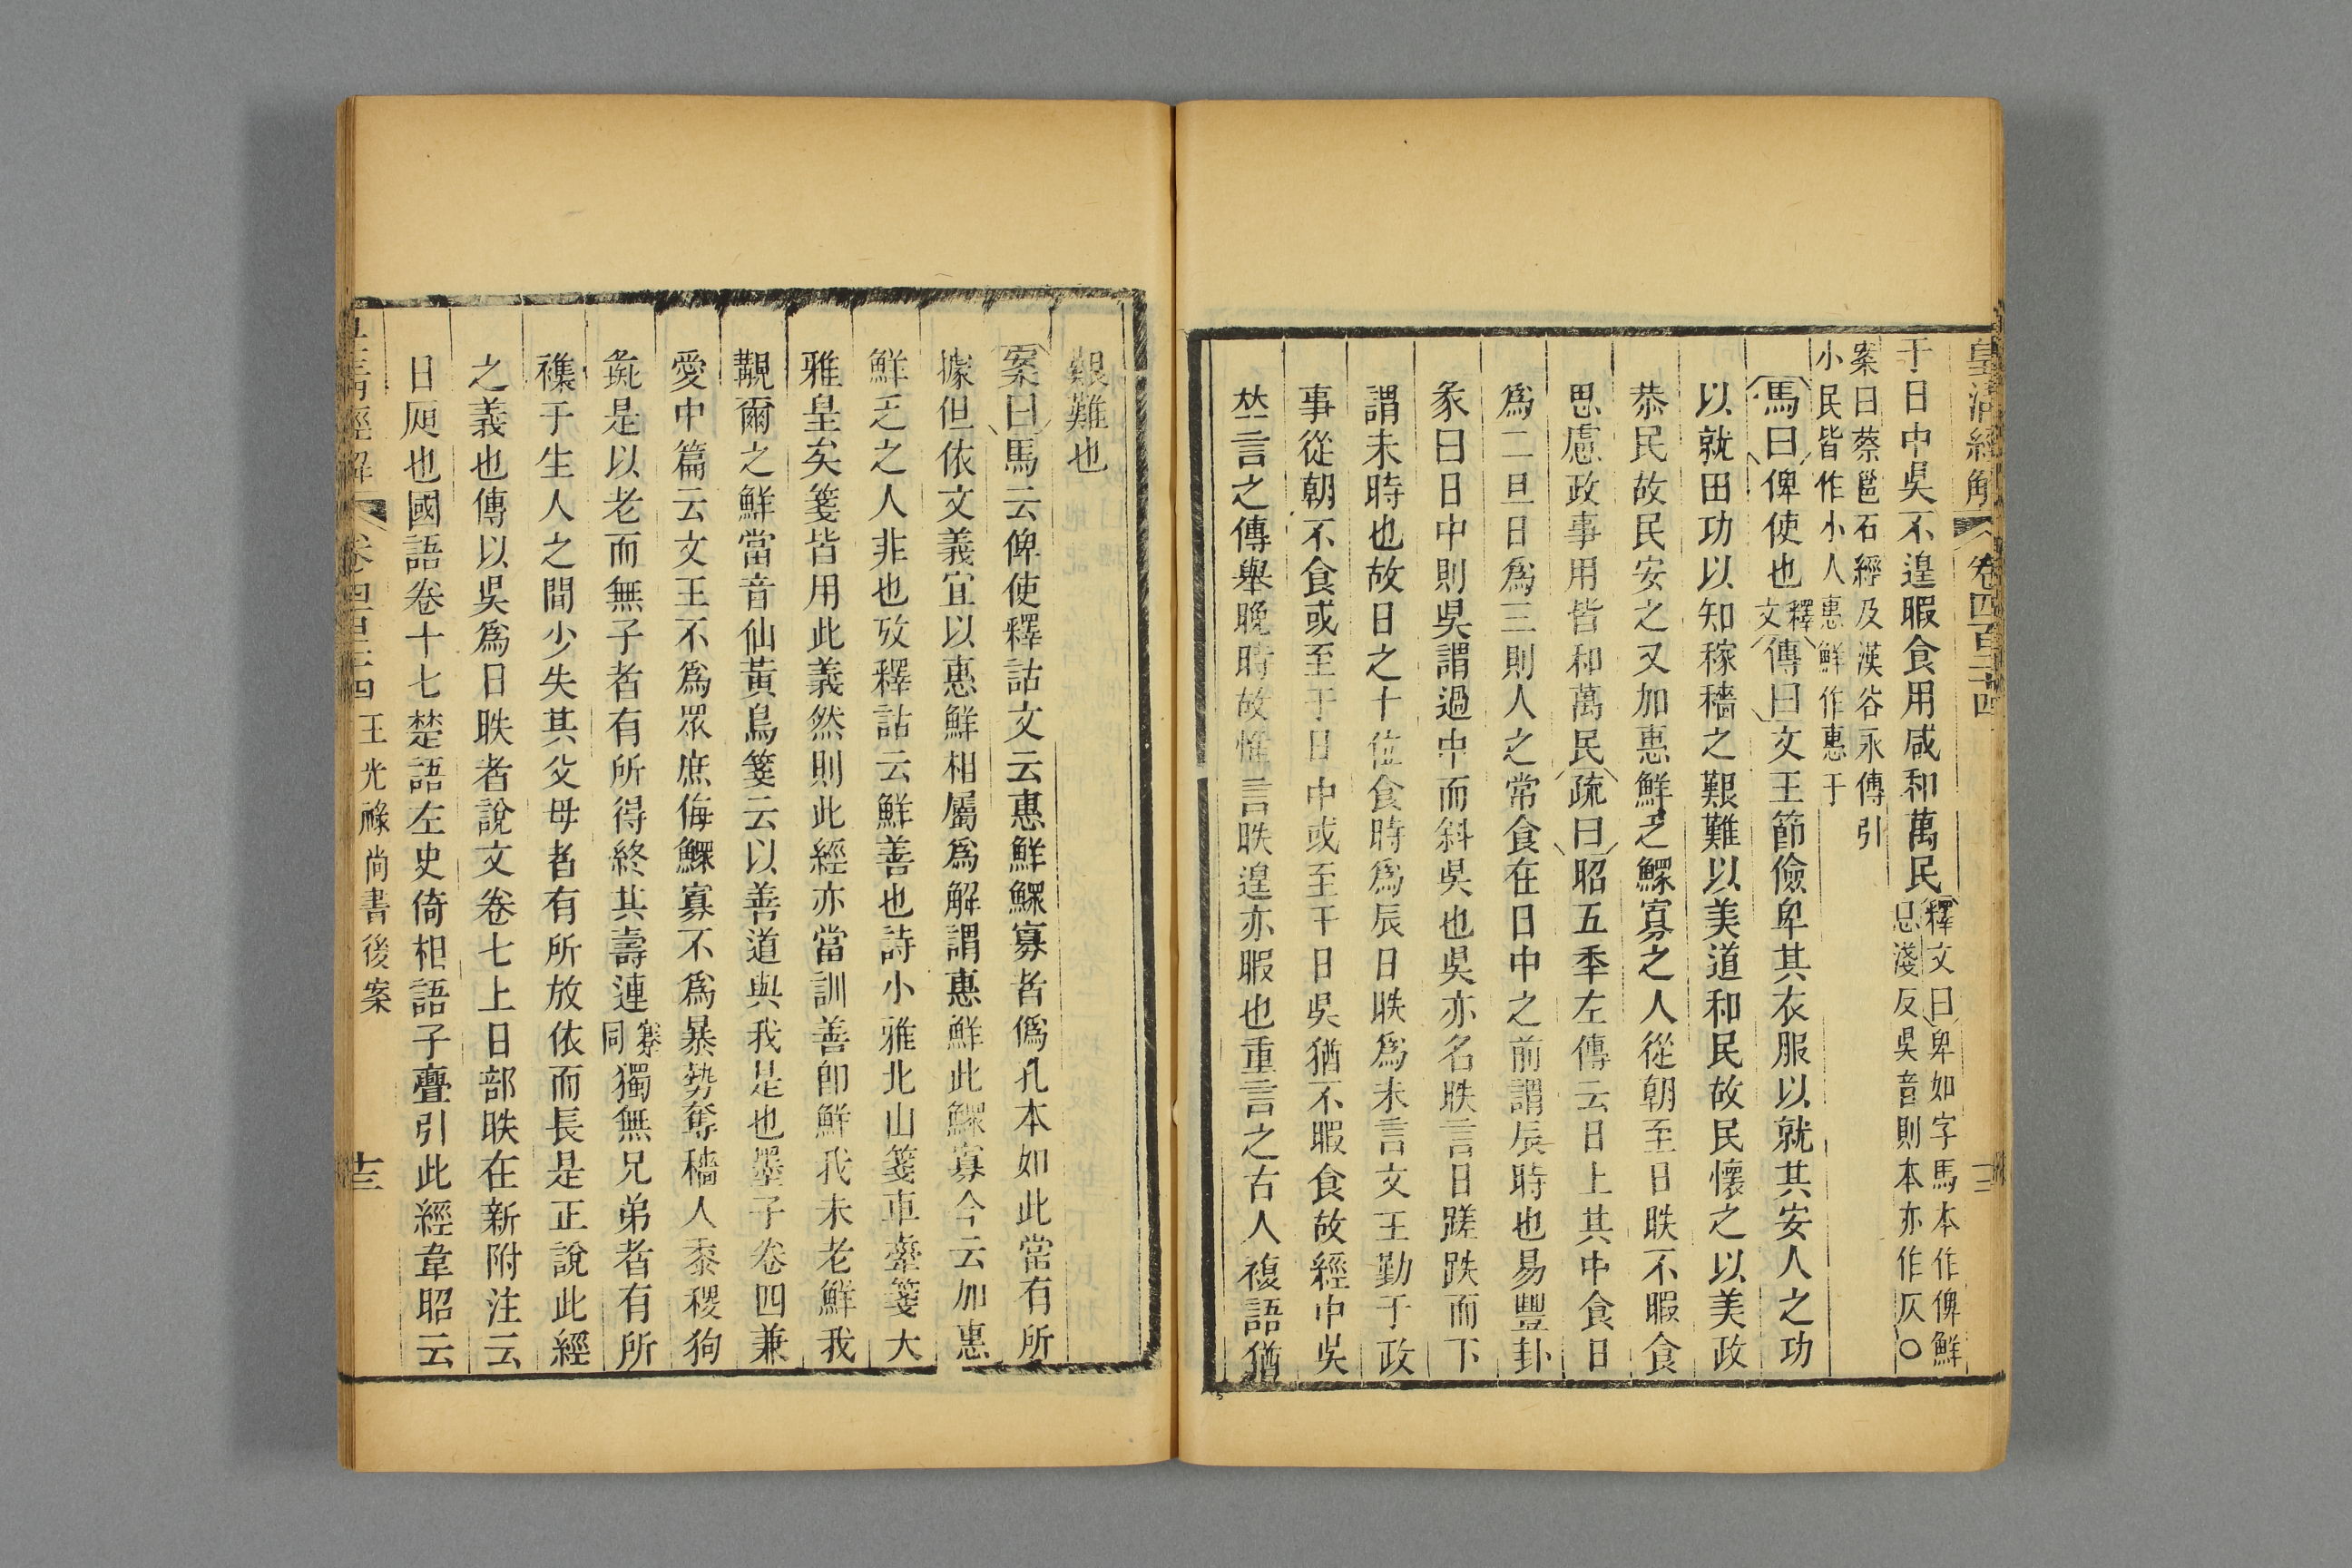 皇清經解　卷四百二十四
于日中昃不遑暇食用咸和萬民
釋文曰卑如字馬本作俾鮮
息淺反昃音則本亦作仄○
案曰蔡邕石經及漢谷永傳引
小民皆作小人惠鮮作惠于
馬曰俾使也釋文傳曰文王節儉卑其衣服以就其安人之功
以就田功以知稼穡之艱難以美道和民故民懷之以美政
恭民故民安之又加惠鮮乏鰥寡之人從朝至日昳不暇食
思慮政事用皆和萬民疏曰昭五季左傳云日上其中食日
爲二旦日爲三則人之常食在日中之前謂辰時也易豐卦
彖曰日中則昃謂過中而斜昃也昃亦名昳言日蹉跌而下
謂未時也故日之十位食時爲辰日昳爲未言文王勤于政
事從朝不食或至于日中或至于日昃猶不暇食故經中昃
竝言之傳舉晚時故惟言昳遑亦暇也重言之古人複語猶
艱難也
案曰馬云俾使釋詁文云惠鮮鰥寡者僞孔本如此當有所
據但依文義宜以惠鮮相屬爲解謂惠鮮此鰥寡今云加惠
鮮乏之人非也攷釋詁云鮮善也詩小雅北山箋車舝箋大
雅皇矣箋皆用此義然則此經亦當訓善卽鮮我未老鮮我
覯爾之鮮當音仙黃鳥箋云以善道與我是也墨子卷四兼
愛中篇云文王不爲眾庶侮鰥寡不爲暴勢奪穡人黍稷狗
彘是以老而無子者有所得終其壽連同獨無兄弟者有所
襍于生人之間少失其父母者有所放依而長是正說此經
之義也傳以昃爲日昳者說文卷七上日部昳在新附注云
日𣅔也國語卷十七楚語左史倚相語子亹引此經韋昭云
卷四百二十四　王光祿尚書後案　十三